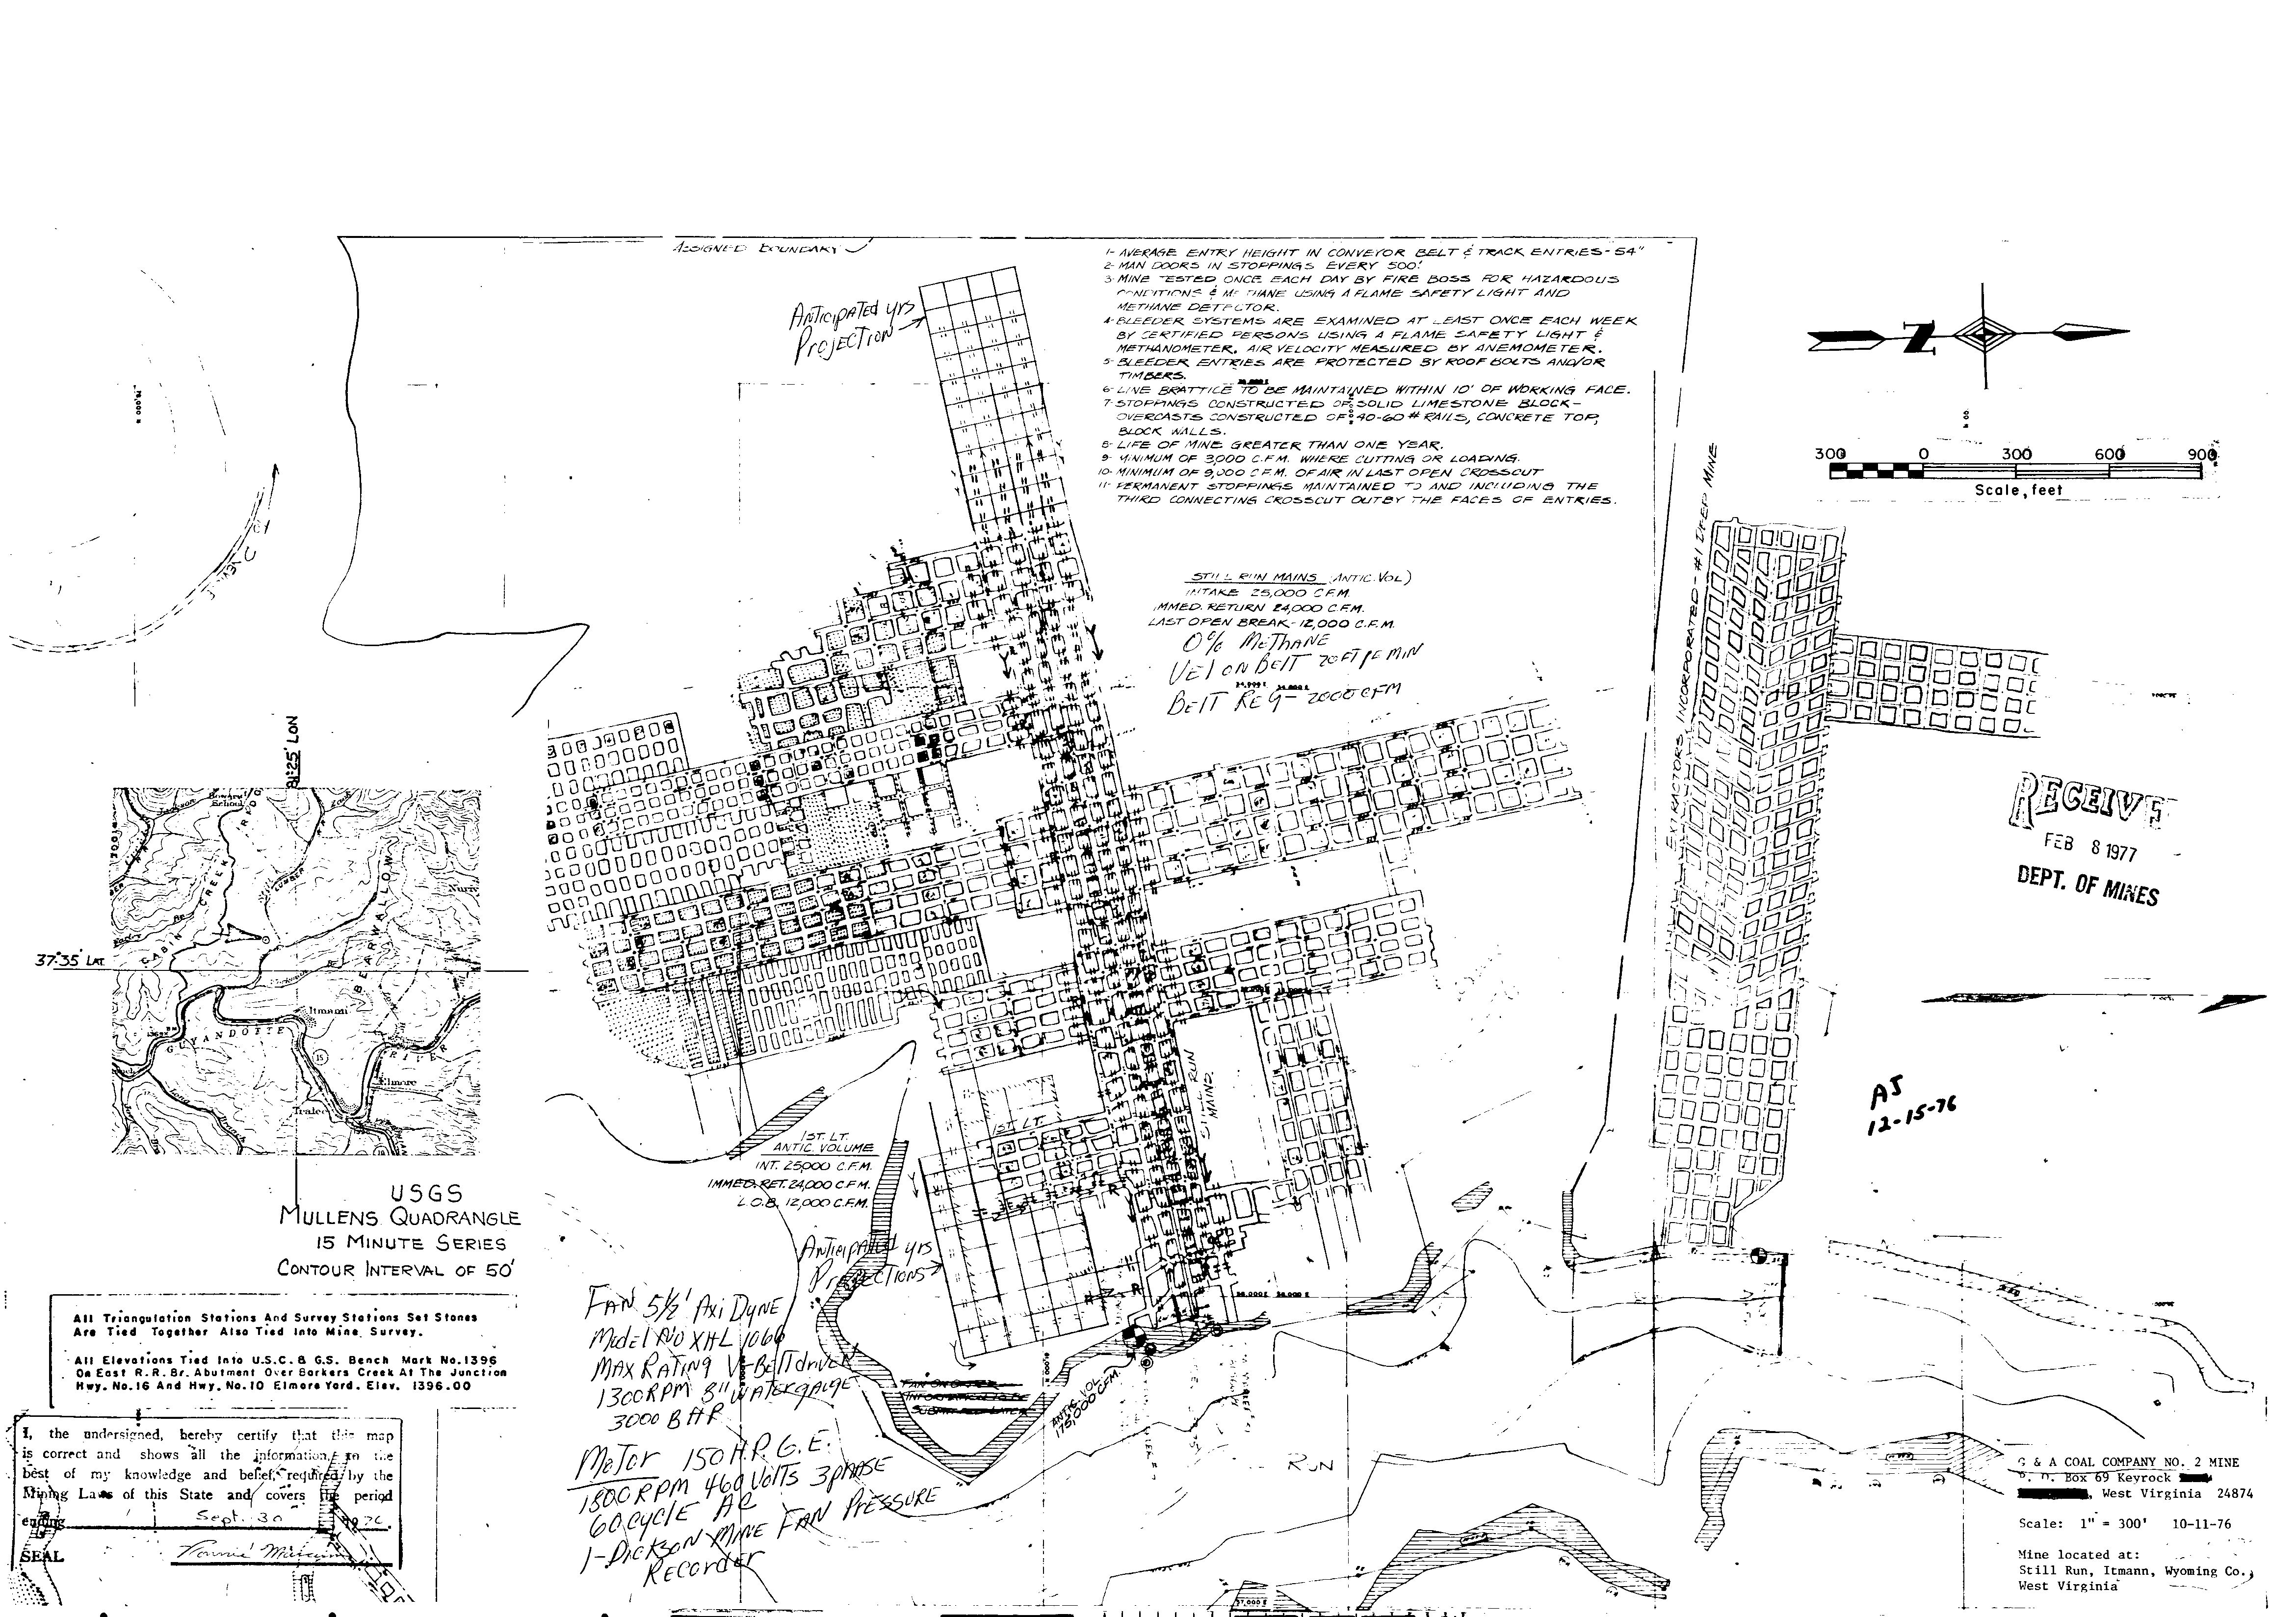 ASSIGNED BOUNDARY
ANTICIPATED YRS
PROJECTION
1- AVERAGE ENTRY HEIGHT IN CONVEYOR BELT & TRACK ENTRIES - 54"
2- MAN DOORS IN STOPPINGS EVERY 500'.
3- MINE TESTED ONCE EACH DAY BY FIRE BOSS FOR HAZARDOUS
CONDITIONS & METHANE USING A FLAME SAFETY LIGHT AND
METHANE DETECTOR.
4- BLEEDER SYSTEMS ARE EXAMINED AT LEAST ONCE EACH WEEK
BY CERTIFIED PERSONS USING A FLAME SAFETY LIGHT &
METHANOMETER. AIR VELOCITY MEASURED BY ANEMOMETER.
5- BLEEDER ENTRIES ARE PROTECTED BY ROOF BOLTS AND/OR
TIMBERS.
6- LINE BRATTICE TO BE MAINTAINED WITHIN 10' OF WORKING FACE.
7- STOPPINGS CONSTRUCTED OF SOLID LIMESTONE BLOCK -
OVERCASTS CONSTRUCTED OF 40-60 # RAILS, CONCRETE TOP,
BLOCK WALLS.
8- LIFE OF MINE GREATER THAN ONE YEAR.
9- MINIMUM OF 3,000 C.F.M. WHERE CUTTING OR LOADING.
10- MINIMUM OF 9,000 C.F.M. OF AIR IN LAST OPEN CROSSCUT
11- PERMANENT STOPPINGS MAINTAINED TO AND INCLUDING THE
THIRD CONNECTING CROSSCUT OUTBY THE FACES OF ENTRIES.
N
300 0 300 600 900
Scale, feet
STILL RUN MAINS (ANTIC. VOL)
INTAKE 25,000 C.F.M.
IMMED. RETURN 24,000 C.F.M.
LAST OPEN BREAK - 12,000 C.F.M.
0% METHANE
VEL ON BELT 70 FT PE MIN
BELT REG - 2000 CFM
EXTRACTORS, INCORPORATED - #1 DEEP MINE
RECEIVE
FEB 8 1977
DEPT. OF MINES
AJ
12-15-76
81°25' LON
37°35' LAT.
CABIN CREEK
Itmann
GUYANDOTTE RIVER
Elmore
Tralee
USGS
MULLENS QUADRANGLE
15 MINUTE SERIES
CONTOUR INTERVAL OF 50'
STILL RUN
MAINS
1ST. LT.
1ST. LT.
ANTIC. VOLUME
INT. 25,000 C.F.M.
IMMED. RET. 24,000 C.F.M.
L.O.B. 12,000 C.F.M.
ANTICIPATED YRS
PROJECTIONS
FAN 5½' AXI DYNE
Model NO XHL 1066
MAX RATING V-Belt driven
1300 RPM 8" WATER gauge
3000 BHP
MOTOR 150 H.P. G.E.
1800 RPM 460 Volts 3 phase
60 cycle AC
1-DICKSON MINE FAN PRESSURE
RECORDER
ANTIC. VOL.
175,000 C.F.M.
RUN
All Triangulation Stations And Survey Stations Set Stones
Are Tied Together Also Tied Into Mine Survey.
All Elevations Tied Into U.S.C. & G.S. Bench Mark No. 1396
On East R.R. Br. Abutment Over Barkers Creek At The Junction
Hwy. No. 16 And Hwy. No. 10 Elmore Yard. Elev. 1396.00
I, the undersigned, hereby certify that this map
is correct and shows all the information, to the
best of my knowledge and belief, required by the
Mining Laws of this State and covers the period
ending Sept. 30 1976.
SEAL
G & A COAL COMPANY NO. 2 MINE
P. O. Box 69 Keyrock
, West Virginia 24874
Scale: 1" = 300' 10-11-76
Mine located at:
Still Run, Itmann, Wyoming Co.,
West Virginia